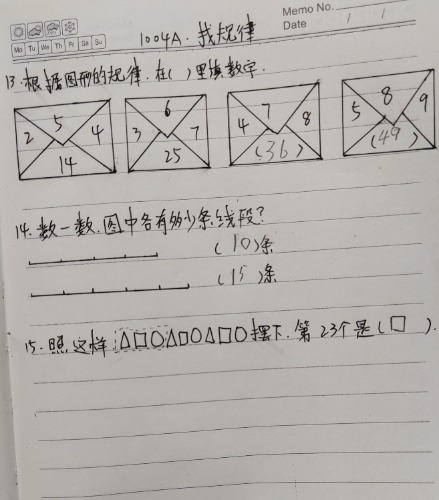 Memo No.
Mo Tu We Th Fr Sa Su
Date / /
1004A. 找规律
13. 根据图形的规律. 在( )里填数字.
2 5 4 14
3 6 7 25
4 7 8 (36)
5 8 9 (49)
14. 数一数. 图中各有多少条线段?
(10)条
(15)条
15. 照这样△□○△□○△□○摆下. 第23个是(□).